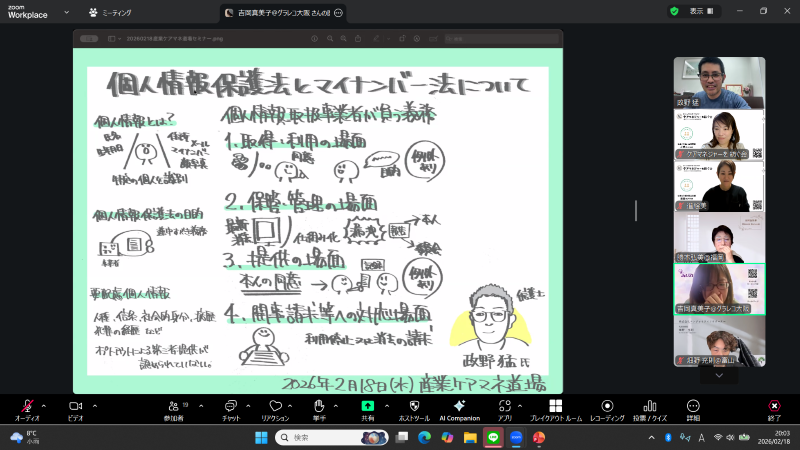 zoom
Workplace
ミーティング
吉岡真美子@グラレコ大阪 さんの画
表示
20260218産業ケアマネ道場セミナー.png
個人情報保護法とマイナンバー法について
個人情報とは？
氏名
生年月日
住所
メール
マイナンバー
顔写真
特定の個人を識別
個人情報保護法の目的
要配慮個人情報
人種、信条、社会的身分、病歴
オプトアウトによる第三者提供が
認められていない。
個人情報取扱事業者が負う義務
1. 取得・利用の場面
同意
目的
例外あり
2. 保管・管理の場面
漏洩
報告
本人
3. 提供の場面
本人の同意
記録
例外あり
4. 開示請求等への対応場面
利用停止または消去の請求
弁護士
政野猛氏
2026年2月18日(水) 産業ケアマネ道場
政野 猛
ケアマネジャーを紡ぐ会
吉岡真美子@グラレコ大阪
畑野 充則@富山
オーディオ
ビデオ
参加者
19
チャット
リアクション
挙手
共有
ホストツール
AI Companion
アプリ
ブレイクアウト ルーム
レコーディング
投票 / クイズ
詳細
終了
8°C
小雨
検索
A
20:03
2026/02/18